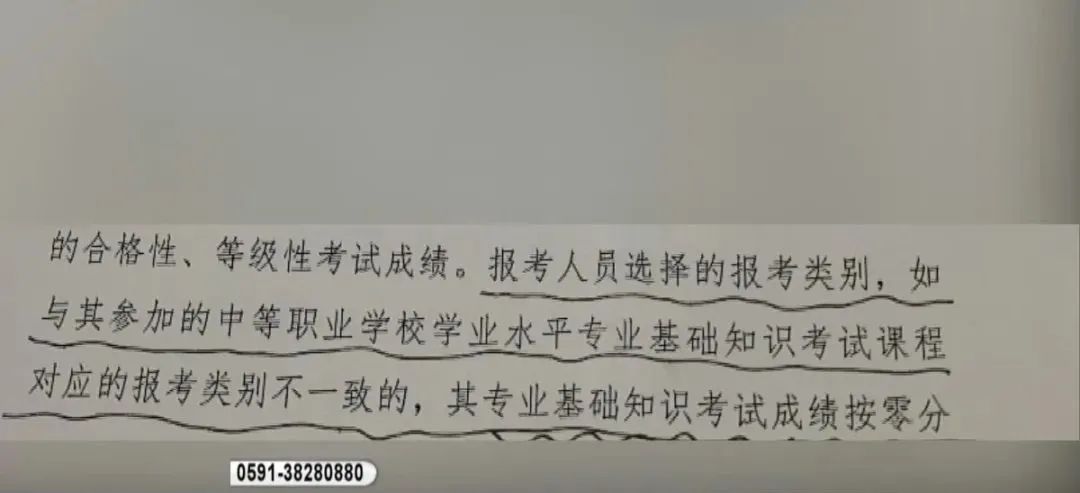 的合格性、等级性考试成绩。报考人员选择的报考类别，如
与其参加的中等职业学校学业水平专业基础知识考试课程
对应的报考类别不一致的，其专业基础知识考试成绩按零分
0591-38280880